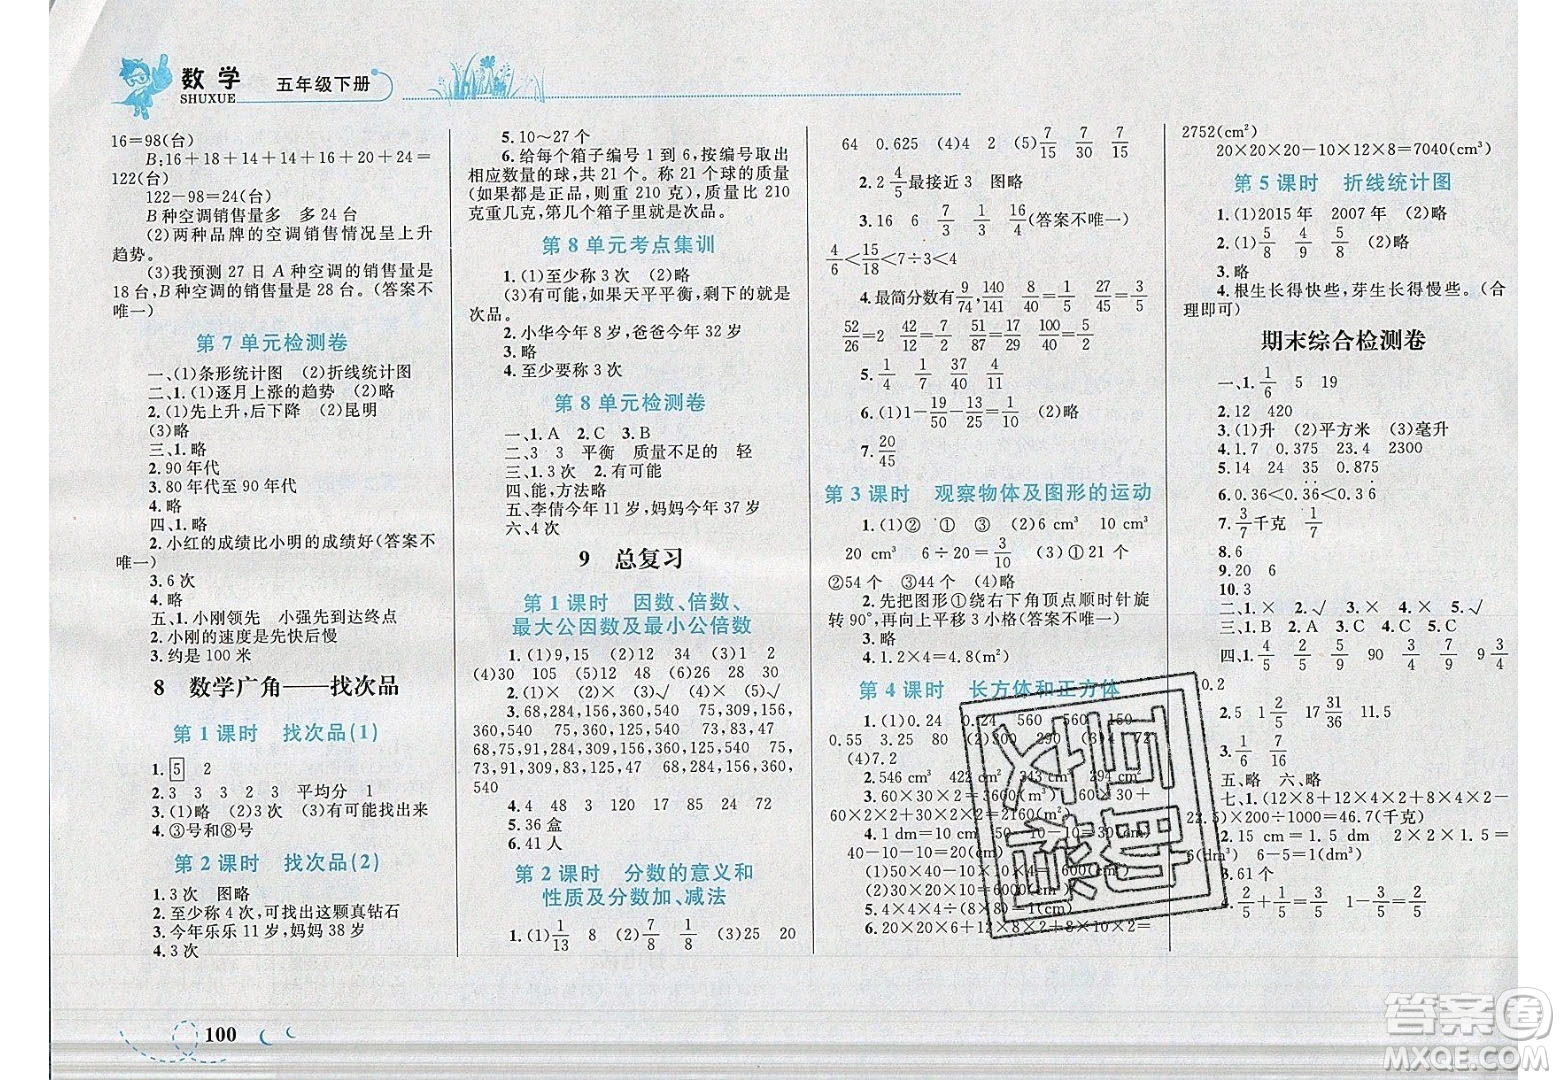 数学
SHUXUE
五年级下册
16=98(台)
B:16+18+14+14+16+20+24=
122(台)
122-98=24(台)
B种空调销售量多 多24台
(2)两种品牌的空调销售情况呈上升
趋势。
(3)我预测27日A种空调的销售量是
18台,B种空调的销售量是28台。(答案不
唯一)
第7单元检测卷
一、(1)条形统计图 (2)折线统计图
二、1.(1)逐月上涨的趋势 (2)略
2.(1)先上升,后下降 (2)昆明
(3)略
三、1.略
2.90年代
3.80年代至90年代
4.略
四、1.略
2.小红的成绩比小明的成绩好(答案不
唯一)
3.6次
4.略
五、1.小刚领先 小强先到达终点
2.小刚的速度是先快后慢
3.约是100米
8 数学广角——找次品
第1课时 找次品(1)
1.5 2
2.3 3 3 2 3 平均分 1
3.(1)略 (2)3次 (3)有可能找出来
4.③号和⑧号
第2课时 找次品(2)
1.3次 图略
2.至少称4次,可找出这颗真钻石
3.今年乐乐11岁,妈妈38岁
4.3次
5.10～27个
6.给每个箱子编号1到6,按编号取出
相应数量的球,共21个。称21个球的质量
(如果都是正品,则重210克),称得质量比210
克重几克,第几个箱子里就是次品。
第8单元考点集训
1.(1)至少称3次 (2)略
(3)有可能,如果天平平衡,剩下的就是
次品。
2.小华今年8岁,爸爸今年32岁
3.略
4.至少要称3次
第8单元检测卷
一、1.A 2.C 3.B
二、3 3 平衡 质量不足的 轻
三、1.3次 2.有可能
四、能,方法略
五、李倩今年11岁,妈妈今年37岁
六、4次
9 总复习
第1课时 因数、倍数、
最大公因数及最小公倍数
1.(1)9,15 (2)12 34 (3)14 7
(4)30 105 (5)16 26 28 30
2.(1)× (2)× (3)√ (4)× (5)√
3.68,284,156,360,540 75,360,125,540
68,284,156,360,540 75,53,47,125,47
68,75,31,89,53,47,125,87 89,53,47
73,97,31,89,53,47,125,87 360,540 360,
540
4.4 48 3 120 15 84 24 72
5.36盒
6.41人
第2课时 分数的意义和
性质及分数加、减法
1.(1)1/13 8 (2)7/8 1/8 (3)25 20
64 0.625 (4)4 2 (5)7/15 7/30 7/15
2.2 4/5最接近3 图略
3.16 6 7/3 1/3 16/4(答案不唯一)
6/4<15/18<7÷3<4
4.最简分数有9/74,140/141 8/40=1/5 27/45=3/5
52/26=2 40/12=10/3 17/34=1/2 100/40=5/2
5.1/4 4/7 37/40 4/11
6.(1)1-19/50-13/50=18/50 (2)略
7.20/45
第3课时 观察物体及图形的运动
1.(1)② ① ③ (2)6 cm³ 10 cm³
20 cm³ 6÷20=3/10 (3)①21个
②54个 ③44个 (4)略
2.先把图形①绕右下角顶点顺时针旋
转90°,再向上平移3小格(答案不唯一)
3.略
4.1.2×4=4.8(m²)
第4课时 长方体和正方体
1.(1)0.24 0.24 560 560 150
0.55 3.25 80 (2)300 290
(4)7.2
2.546 cm² 422 cm³ 343 cm³ 294 cm²
5.4×4×4÷(8×8)=1(cm)
6.20×20×6+12×8×2+10×8×2=
2752(cm²)
20×20×20-10×12×8=7040(cm³)
第5课时 折线统计图
1.(1)2015年 2007年 (2)略
2.(1)5/8 4/9 5/8 (2)略
3.略
4.根生长得快些,芽生长得慢些。(合
理即可)
期末综合检测卷
一、1.1/6 5 19
2.12 420
3.(1)升 (2)平方米 (3)毫升
4.1.7 0.375 4.23 2300
5.14 24 35 0.875
6.0.36<0.36<0.36
7.3/7千克 1/7
8.6
9.20 6
10.3
二、1.× 2.√ 3.× 4.× 5.√
三、1.B 2.A 3.C 4.C 5.C
四、1.4/5 2/5 5/9 90 3/4 9 3/4
0.2
2.5 1 2/5 17 31/36 11.5
3.1/6 7/16
五、略 六、略
七、1.(12×8+12×4×2+8×4×2-
22.5)×200÷1000=46.7(千克)
2.15 cm=1.5 dm 2×2×1.5=
6(dm³) 6-5=1(dm³)
3.61个
4.2/5+1/5=3/5 1-3/5=2/5
100
答案圈
MXQE.COM